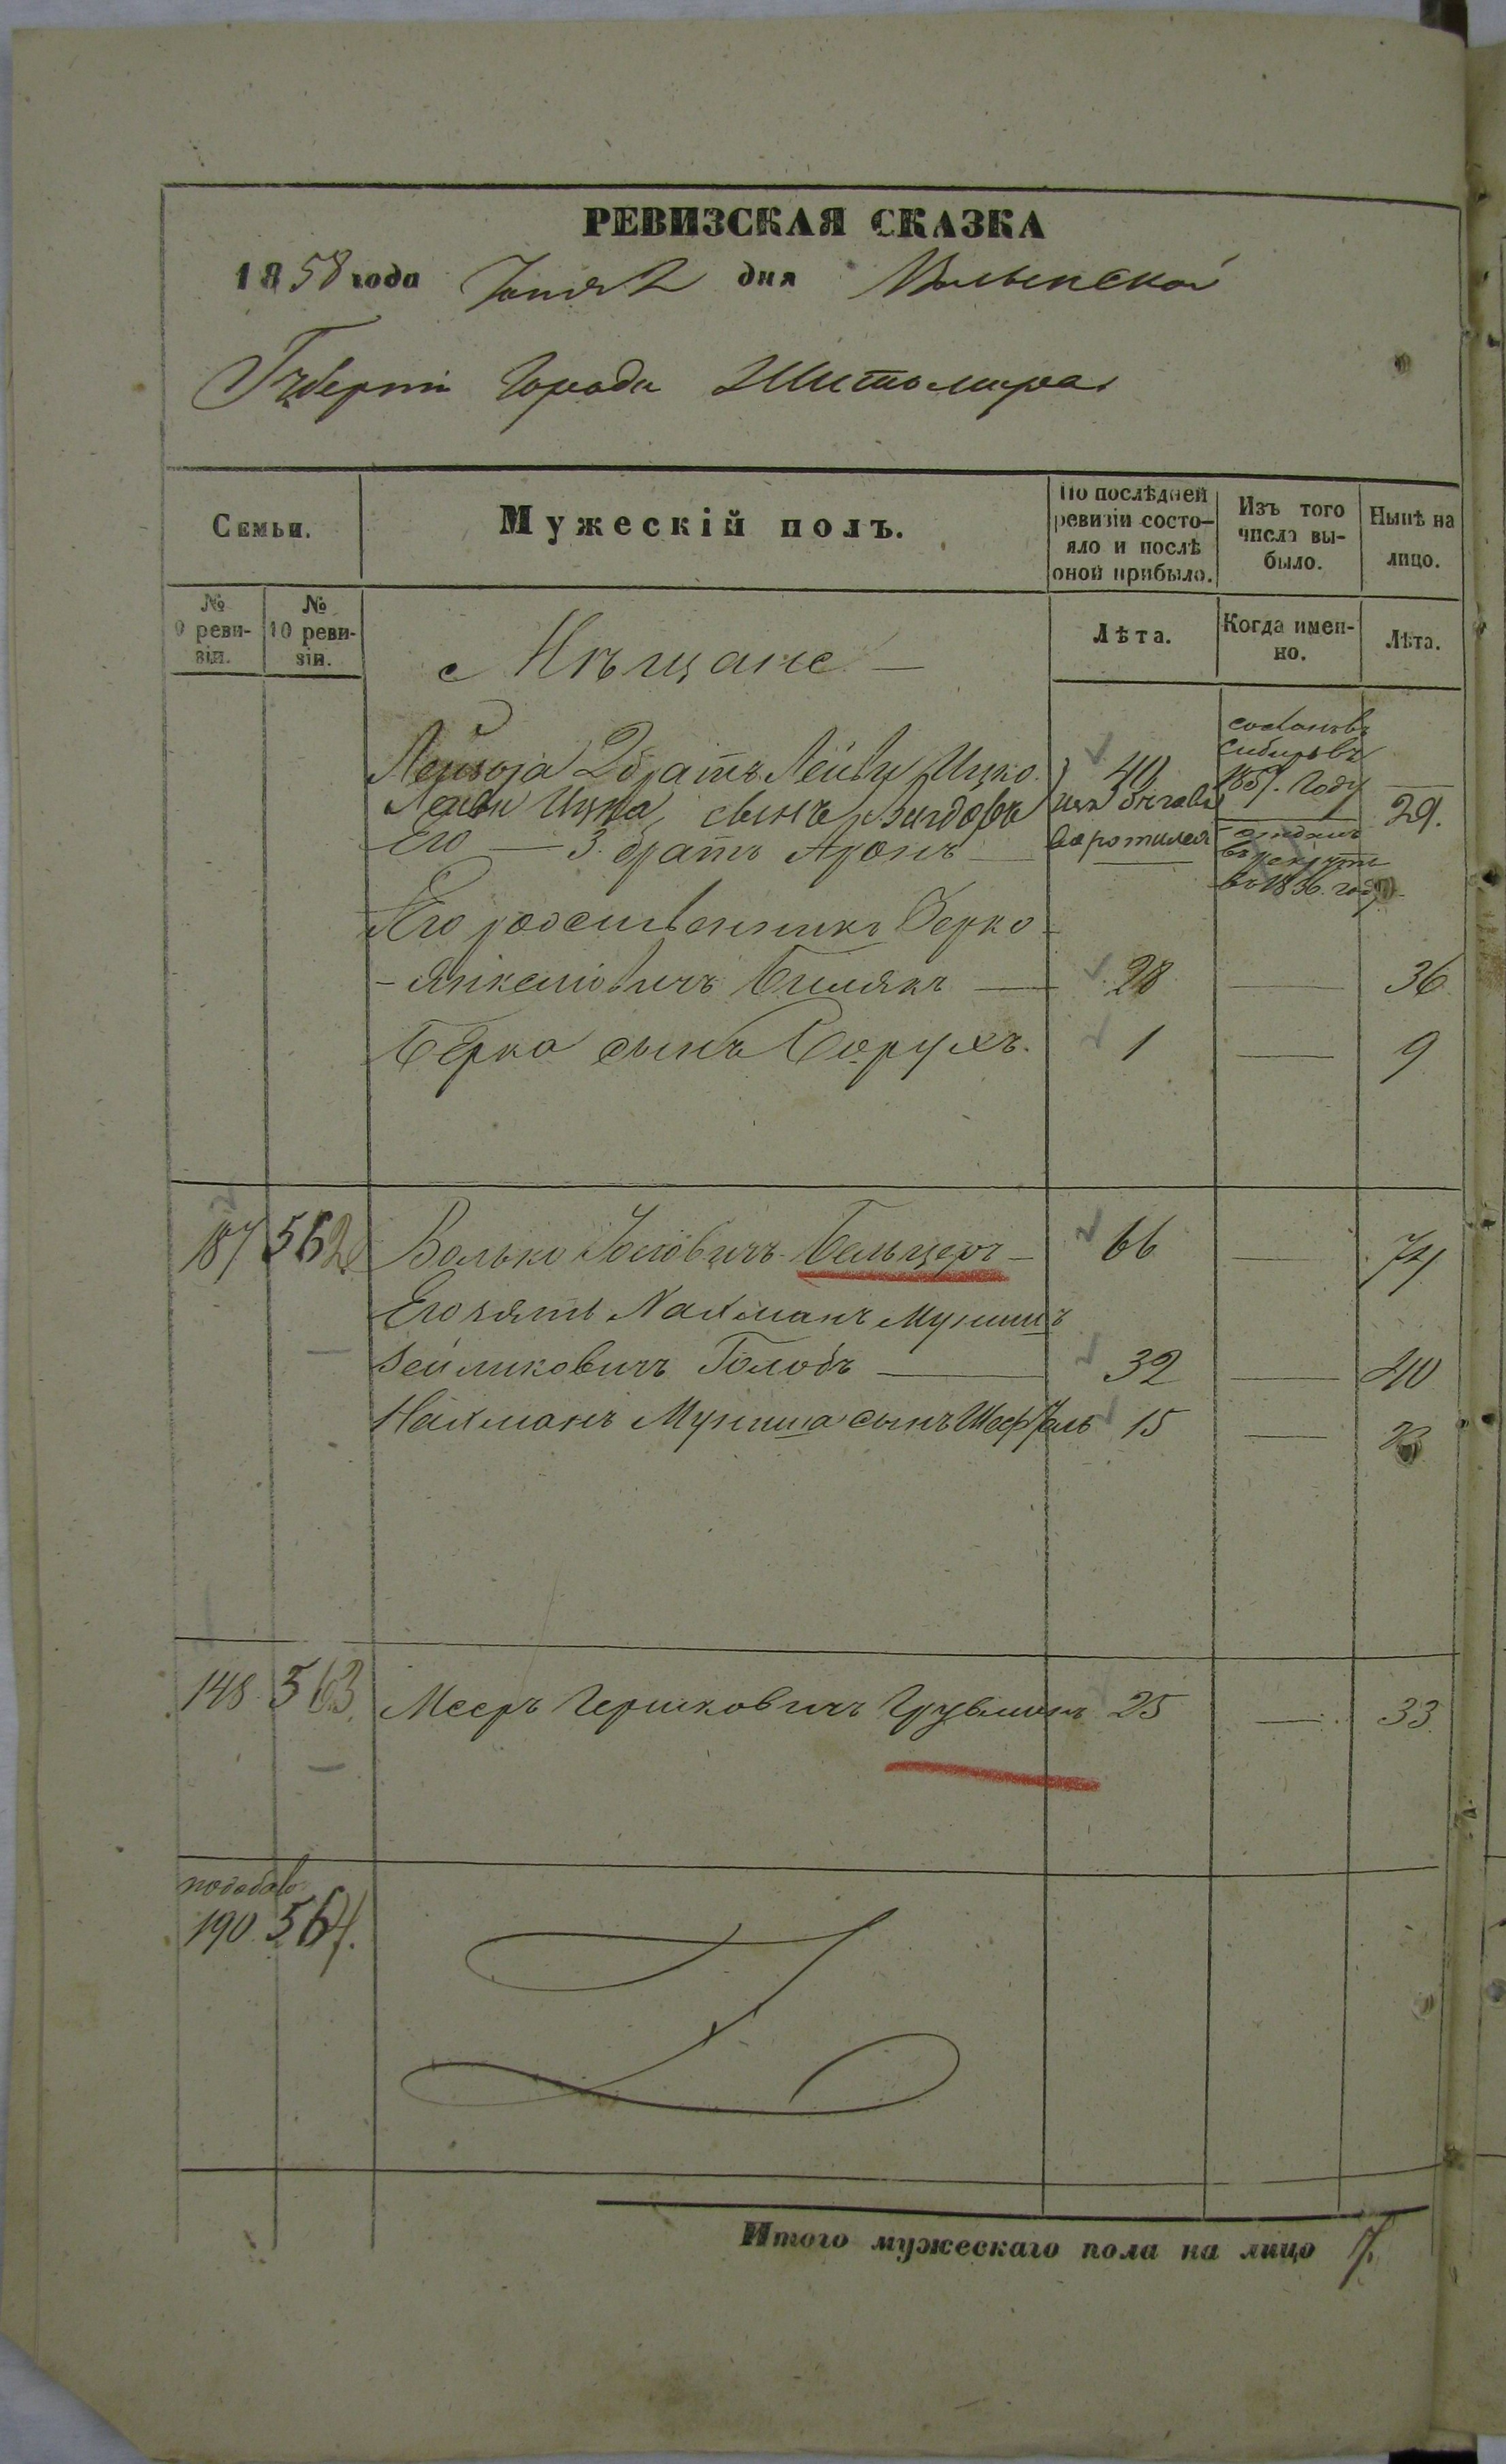 РЕВИЗСКАЯ СКАЗКА
1858 года Іюня 2 дня Волынской
Губерніи города Житомира
Семьи.
Мужескій полъ.
По послѣдней ревизіи состо-
яло и послѣ
оной прибыло.
Изъ того
числа вы-
было.
Нынѣ на
лицо.
№
9 реви-
зіи.
№
10 реви-
зіи.
Мѣщане
Лѣта.
Когда имен-
но.
Лѣта.
2 братъ Лейви Ицко
40
сосланъ въ
Сибирь въ
1857. году
Лейви Ицка сынъ Вигдоръ
изъ бѣговъ
воротился
29.
Его — 3. братъ Аронъ
отданъ
въ рекруты
въ 1856. году
Его родственникъ Берко
Янкелiовичъ Билякъ
28
36
Берко сынъ Борухъ.
1
9
187 562
Волько Іосiовичъ Бельцеръ
66
74
Его зять Нахманъ Мунишъ
Зейликовичъ Голобъ
32
40
Нахманъ Муниша сынъ Шефтель
15
23
148. 563.
Мееръ Гершковичъ
25
33
190. 564.
Итого мужескаго пола на лицо 7.